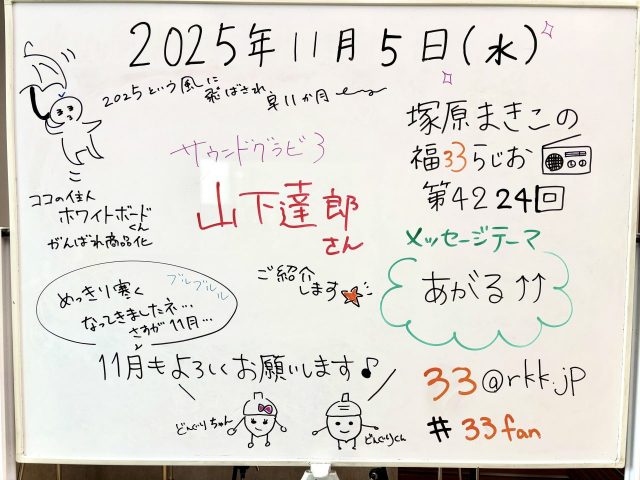 2025年11月5日(水)
2025という風に
飛ばされ
早11か月
塚原まきこの
福33らじお
第4224回
サウンドグラビ3
山下達郎
さん
ご紹介
します
ココの住人
ホワイトボード
くん
がんばれ商品化
メッセージテーマ
あがる↑↑
ブルブルル
めっきり寒く
なってきましたネ…
さすが11月…
11月もよろしくお願いします♪
どんぐりちゃん
どんぐりくん
33@rkk.jp
#33fan